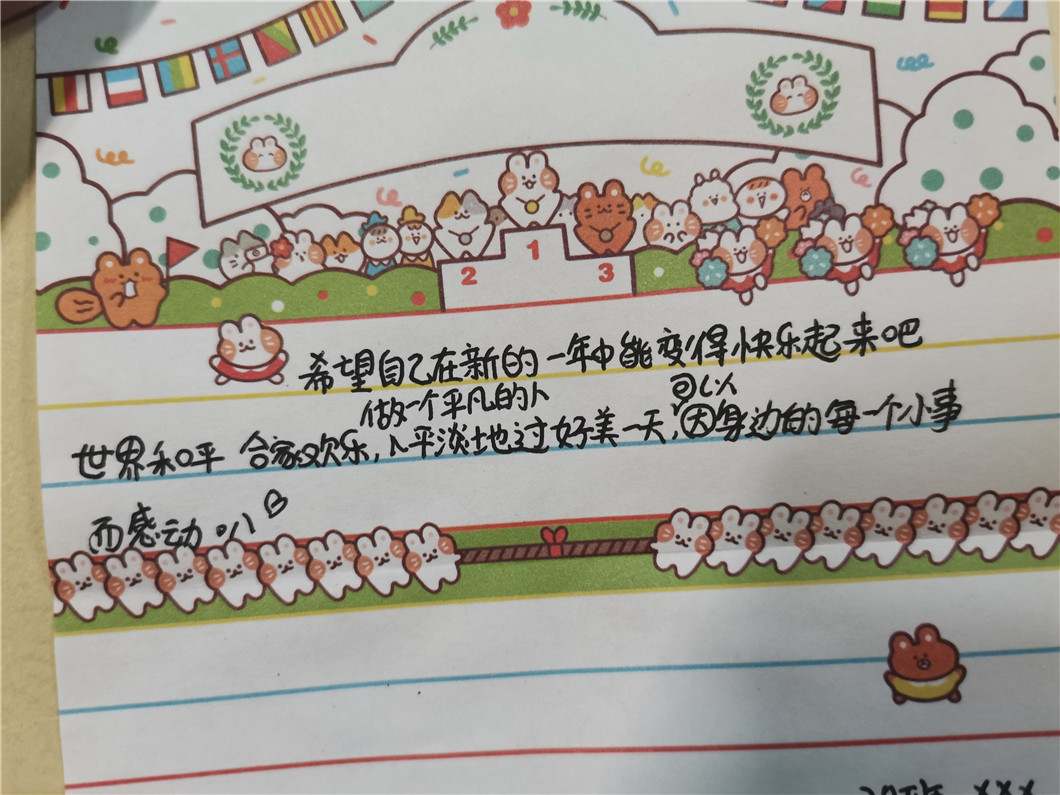 1
2
3
希望自己在新的一年中能变得快乐起来吧
做一个平凡的人
可以
世界和平 合家欢乐,平淡地过好美一天,因身边的每一个小事
而感动